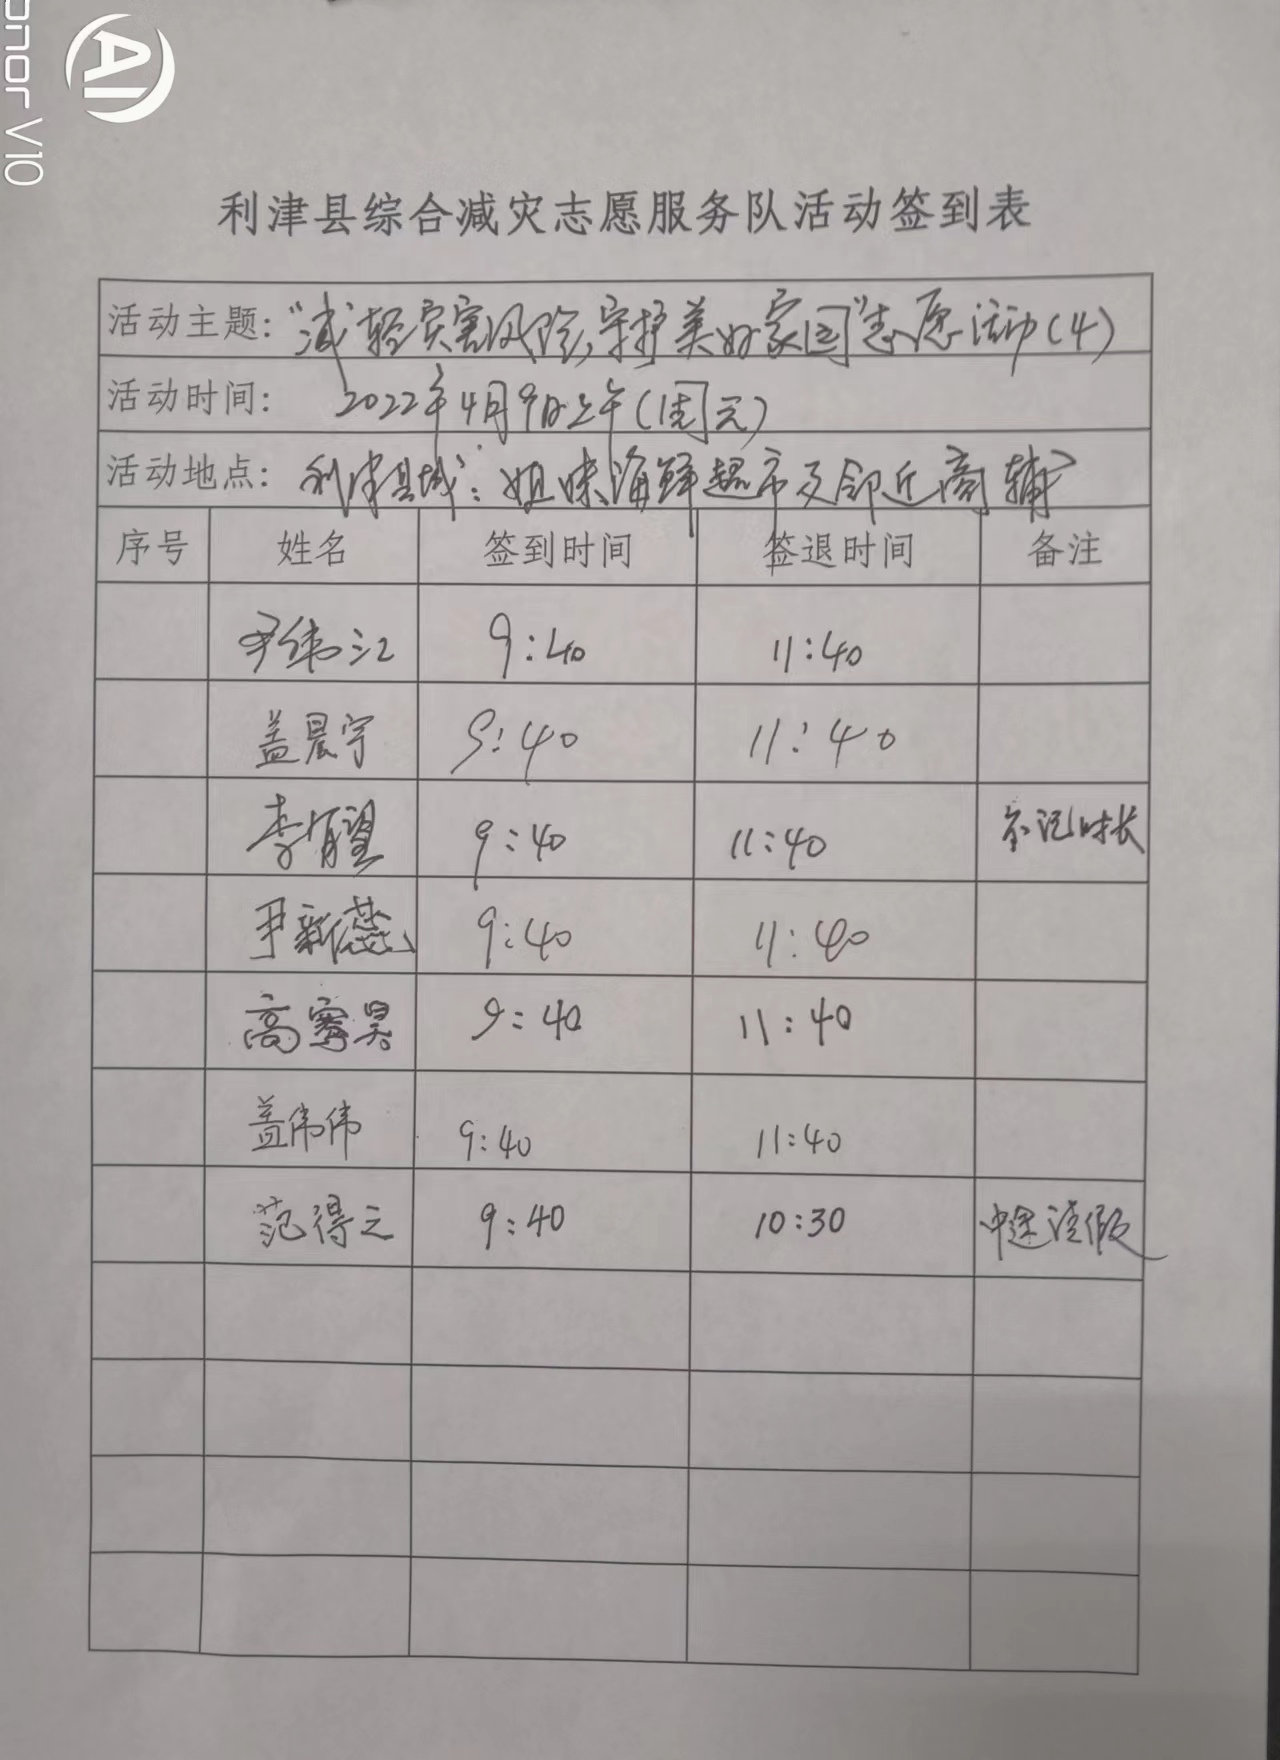 onor V10
AI
利津县综合减灾志愿服务队活动签到表
活动主题："减轻灾害风险,守护美好家园"志愿活动(4)
活动时间： 2022年4月9日上午(周六)
活动地点：利津县城：姐妹海鲜超市及邻近商铺
序号 姓名 签到时间 签退时间 备注
尹纬江 9:40 11:40
盖晨宇 9:40 11:40
李有望 9:40 11:40 不记时长
尹新蕊 9:40 11:40
高寗昊 9:40 11:40
盖伟伟 9:40 11:40
范得云 9:40 10:30 中途请假